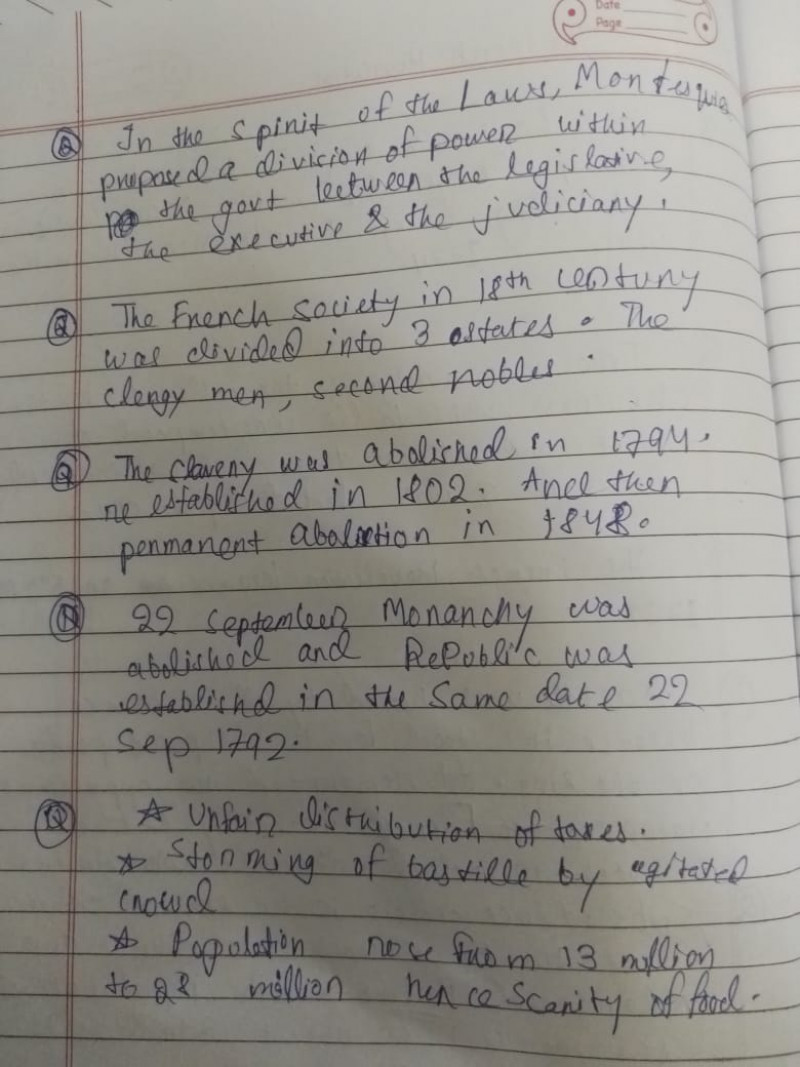 Date
Page
Q In the Spirit of the Laws, Montesquie
proposed a division of power within
the govt between the legislative,
the executive & the judiciary.
Q The French Society in 18th century
was divided into 3 estates. The
clergy men, second nobles.
Q The slaveny was abolished in 1794.
re established in 1802. And then
permanent abolition in 1848.
Q 22 September Monarchy was
abolished and RePublic was
establishd in the same date 22
Sep 1792.
Q ☆ Unfair distribution of taxes.
☆ Storming of bastille by agitated
crowd
☆ Population rose from 13 million
to 28 million hence Scarity of food.